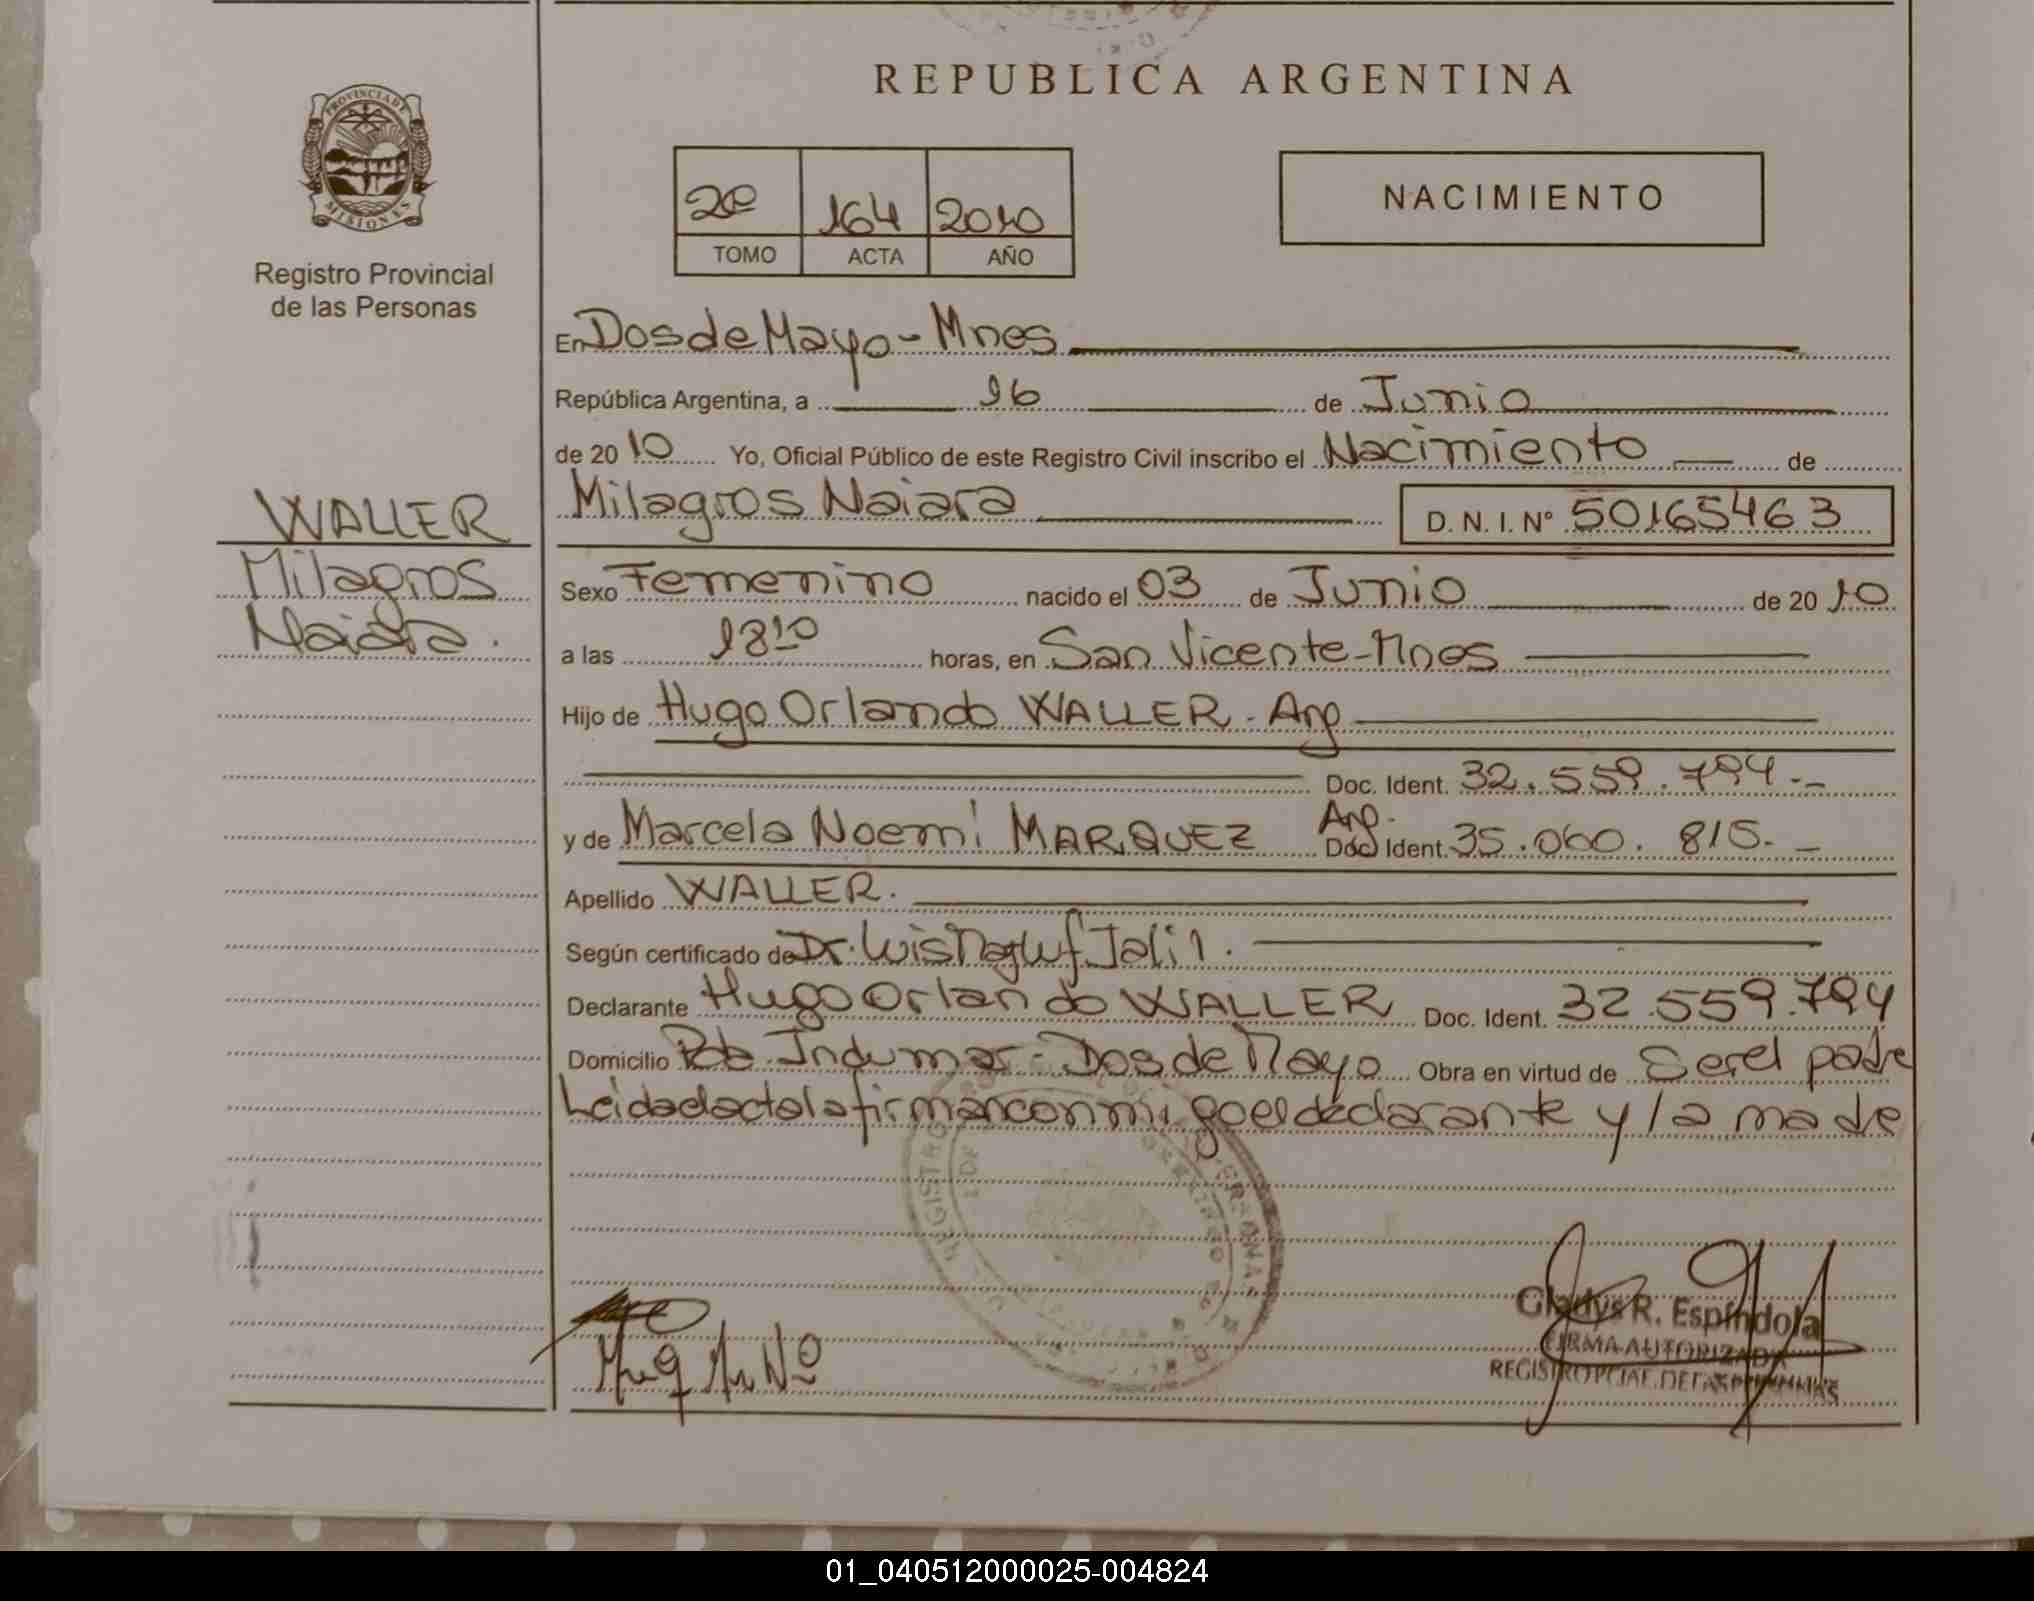 REPUBLICA ARGENTINA
PROVINCIA DE
MISIONES
Registro Provincial
de las Personas
2º 164 2010
TOMO ACTA AÑO
NACIMIENTO
En Dos de Mayo - Mnes
República Argentina, a 16 de Junio
de 2010 Yo, Oficial Público de este Registro Civil inscribo el Nacimiento de
WALLER
Milagros
Naiara.
Milagros Naiara D. N. I. Nº 50165463
Sexo Femenino nacido el 03 de Junio de 2010
a las 18 10 horas, en San Vicente - Mnes
Hijo de Hugo Orlando WALLER - Arg
Doc. Ident. 32.559.794.-
y de Marcela Noemi MARQUEZ Arg. Doc Ident. 35.060.815.-
Apellido WALLER.
Según certificado de Dr. Luis Jalil.
Declarante Hugo Orlando WALLER Doc. Ident. 32.559.794
Domicilio Indumar - Dos de Mayo Obra en virtud de Ser el padre
Leida el acta la firman conmigo el declarante y la madre
Gladys R. Espíndola
FIRMA AUTORIZADA
REGISTRO PCIAL. DE LAS PERSONAS
01_040512000025-004824